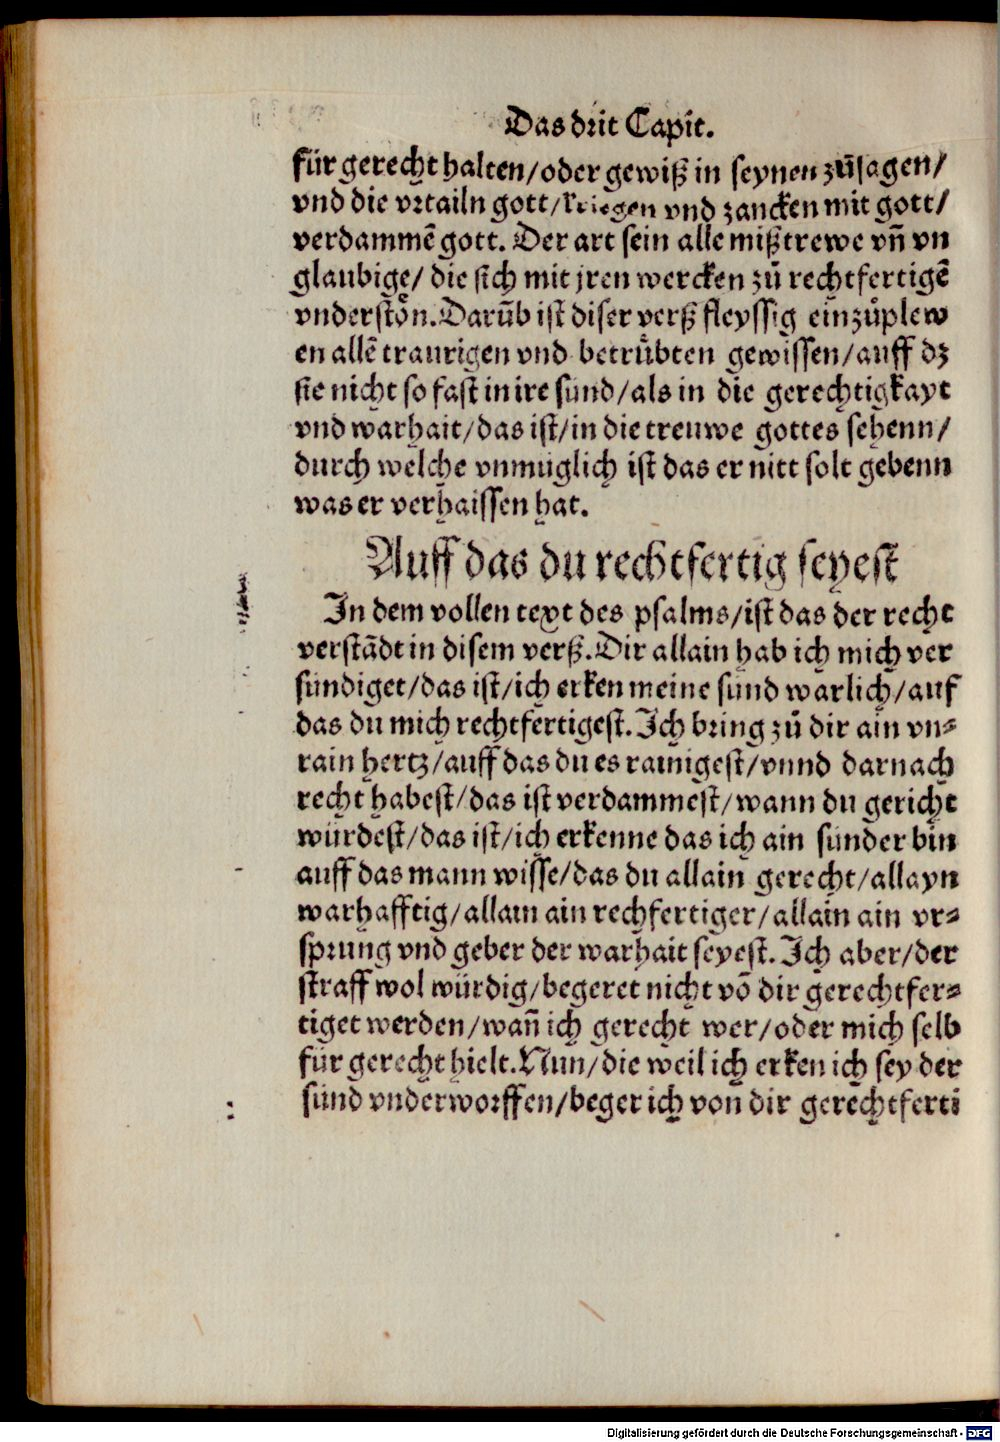 Das drit Capit.
für gerecht halten/oder gewiß in seynen zůsagen/
vnd die vrtailn gott/kriegen vnd zancken mit gott/
verdammē gott. Der art sein alle mißtrewe vn̄ vn
glaubige/ die sich mit jren wercken zů rechtfertigē
vnderstōn. Darūb ist diser verß fleyssig einzůplew
en allē traurigen vnd betrůbten gewissen/auff dz
sie nicht so fast in ire sünd/als in die gerechtigkayt
vnd warhait/das ist/in die treuwe gottes sehenn/
durch welche vnmüglich ist das er nitt solt gebenn
was er verhaissen hat.
Auff das du rechtfertig seyest
In dem vollen text des psalms/ist das der recht
verstādt in disem verß. Dir allain hab ich mich ver
sündiget/das ist/ich erken meine sünd warlich/auf
das du mich rechtfertigest. Ich bring zů dir ain vn⸗
rain hertz/auff das du es rainigest/vnnd darnach
recht habest/das ist verdammest/wann du gericht
würdest/das ist/ich erkenne das ich ain sünder bin
auff das mann wisse/das du allain gerecht/allayn
warhafftig/allain ain rechfertiger/allain ain vr⸗
sprung vnd geber der warhait seyest. Ich aber/der
straff wol würdig/begeret nicht vō dir gerechtfer⸗
tiget werden/wan̄ ich gerecht wer/oder mich selb
für gerecht hielt. Nun/die weil ich erken ich sey der
sünd vnderworffen/beger ich von dir gerechtferti
Digitalisierung gefördert durch die Deutsche Forschungsgemeinschaft - DFG